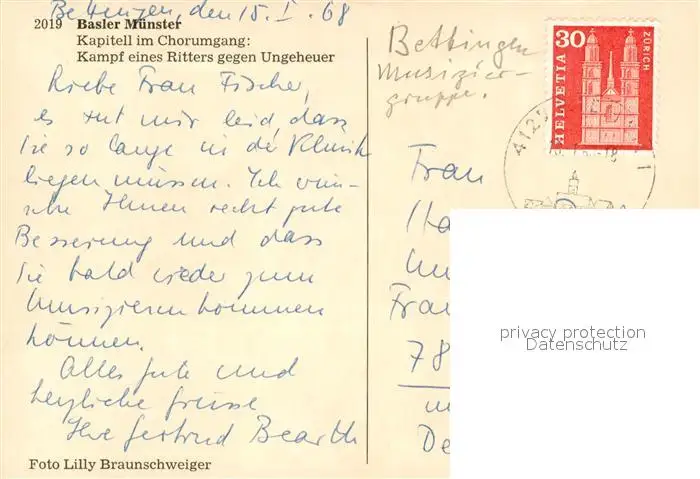 Bettingen, den 15. I. 68
2019 Basler Münster
Kapitell im Chorumgang:
Kampf eines Ritters gegen Ungeheuer
Liebe Frau Fischer,
es tut mir leid, dass
Sie so lange in der Klinik
liegen müssen. Ich wün-
sche Ihnen recht gute
Besserung und dass
Sie bald wieder zum
Musizieren kommen
können.
Alles gute und
herzliche grüsse
Ihre Gertrud
Foto Lilly Braunschweiger
Bettingen
Musizier-
gruppe.
HELVETIA 30 ZÜRICH
4125
Frau
Frau
78
privacy protection
Datenschutz